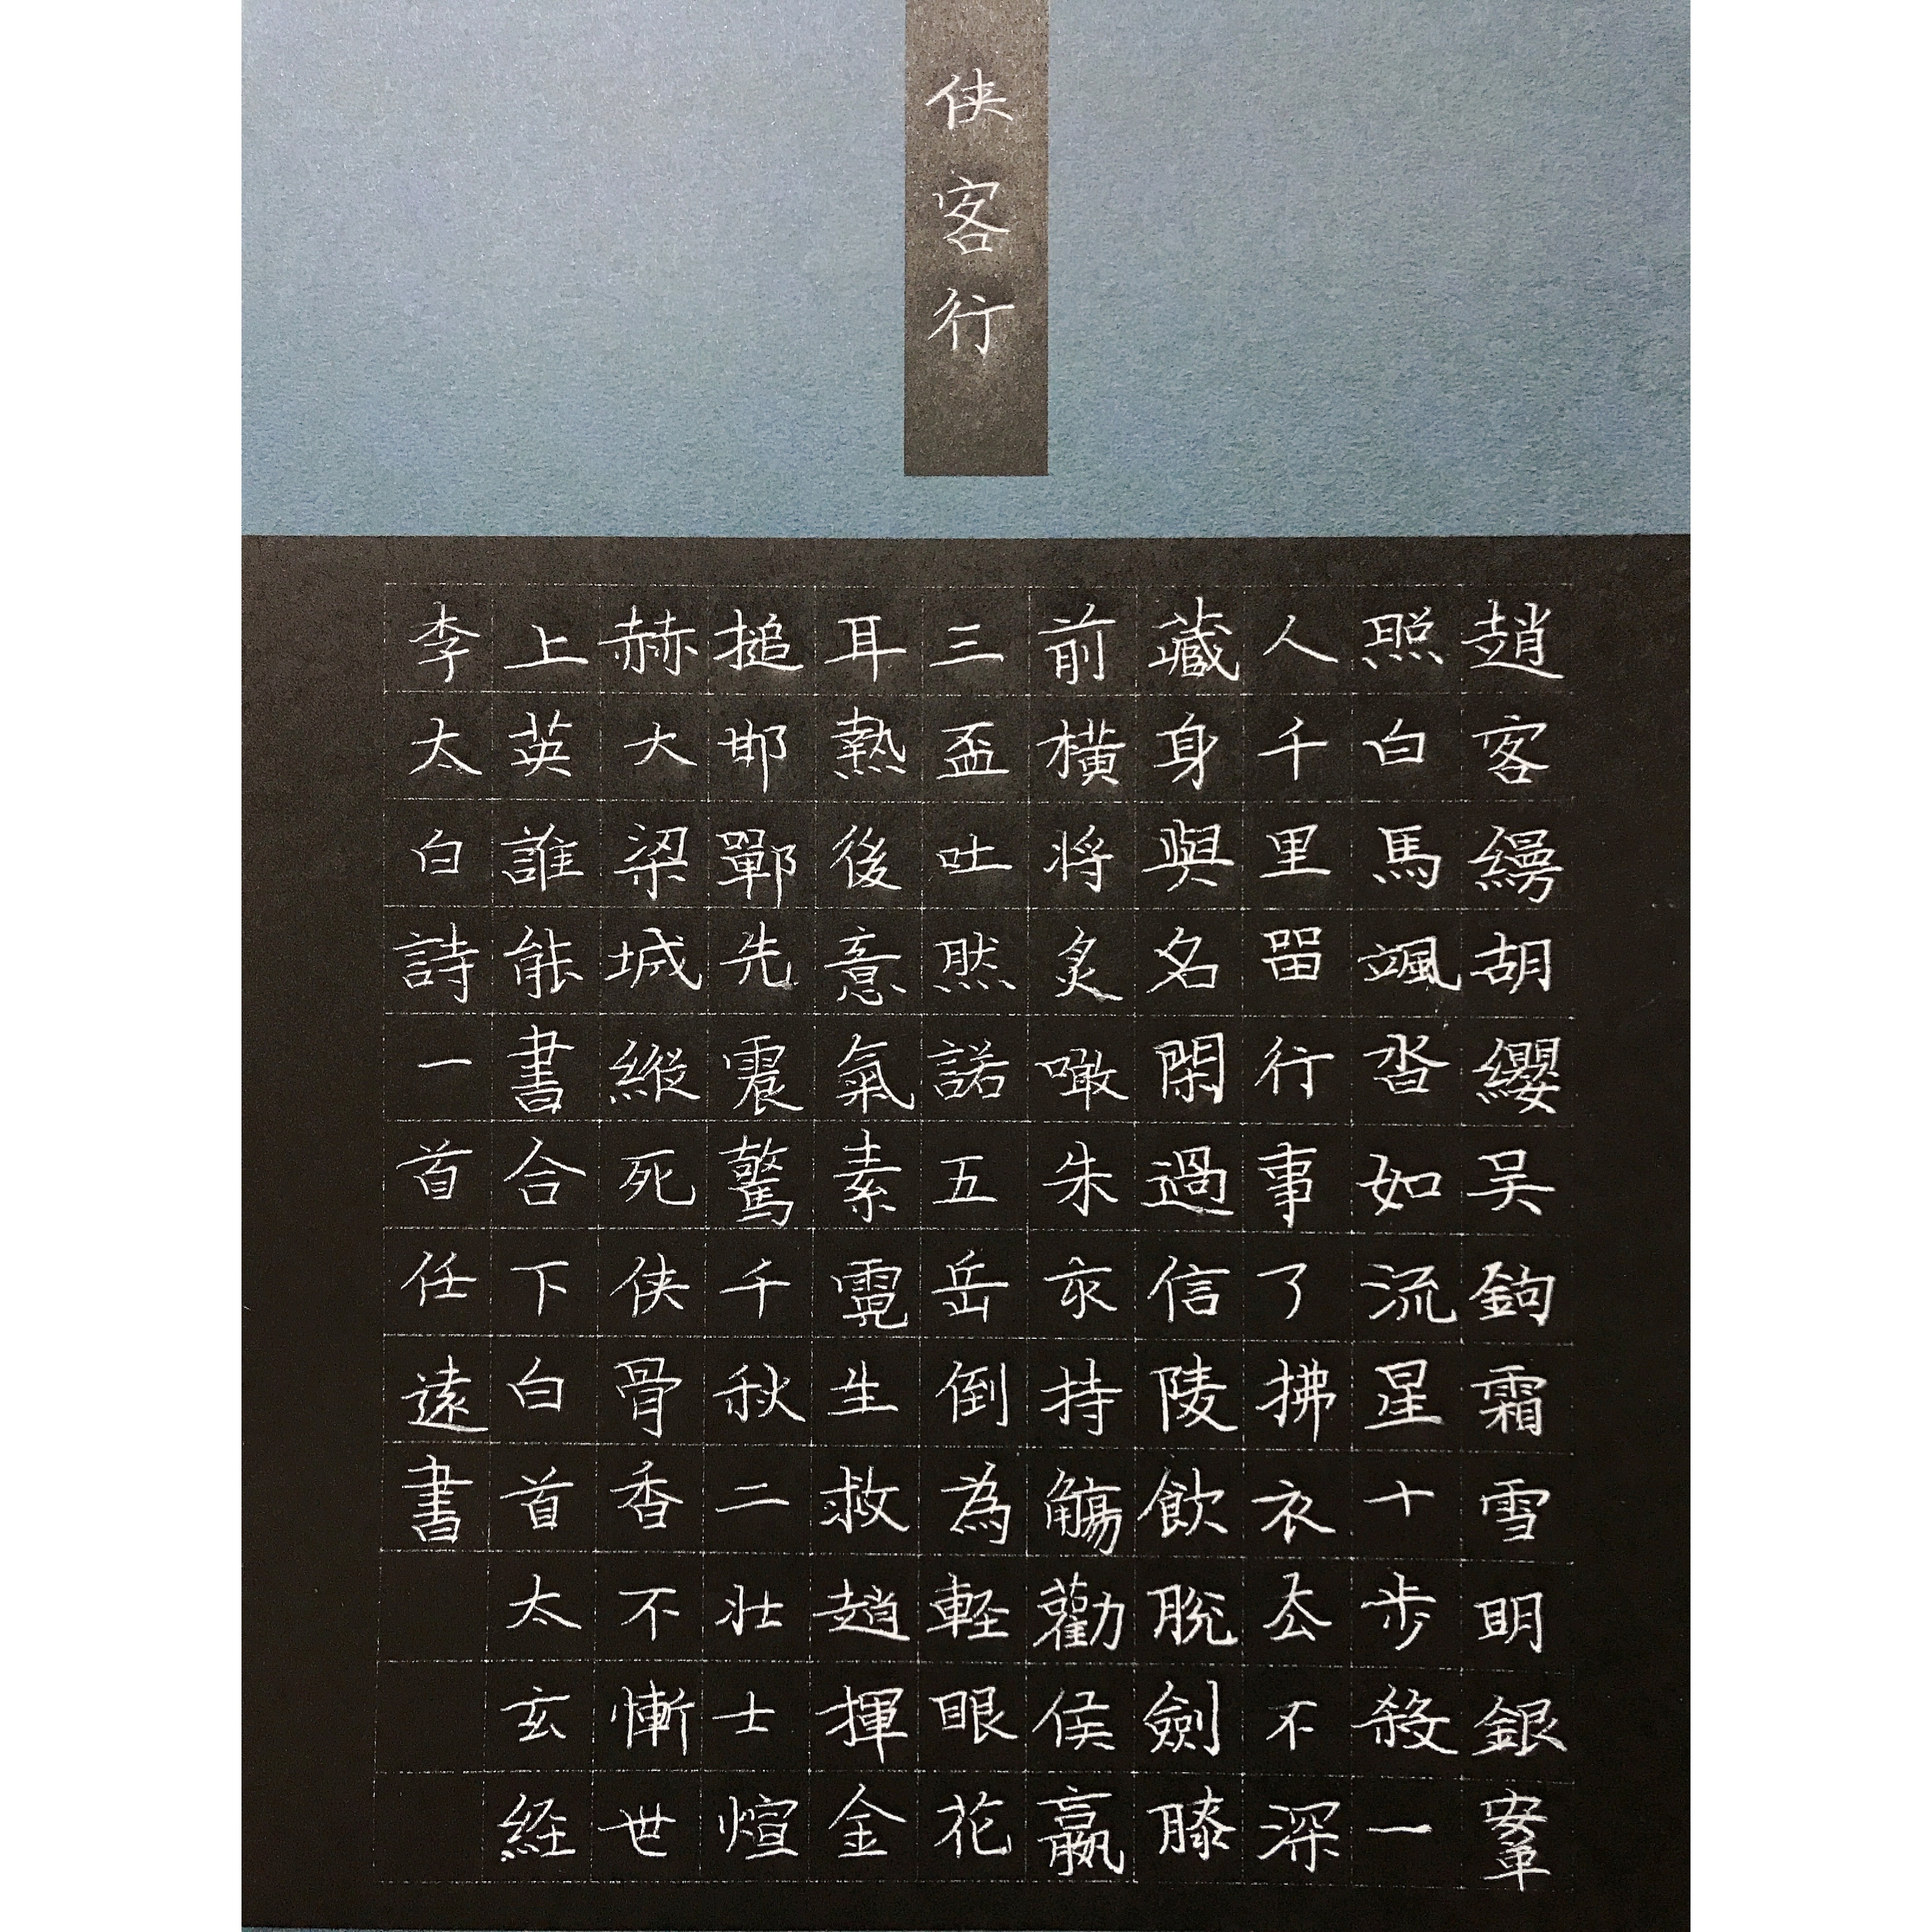 侠客行
趙客縵胡纓吴鉤霜雪明銀鞌
照白馬颯沓如流星十步殺一
人千里留行事了拂衣厺不深
藏身與名閑過信陵飲脫劍膝
前橫将炙噉朱亥持觴勸侯嬴
三盃吐然諾五岳倒為軽眼花
耳熱後意氣素霓生救趙揮金
搥邯鄲先震驚千秋二壯士煊
赫大梁城縱死侠骨香不慚世
上英誰能書合下白首太玄経
李太白詩一首任遠書